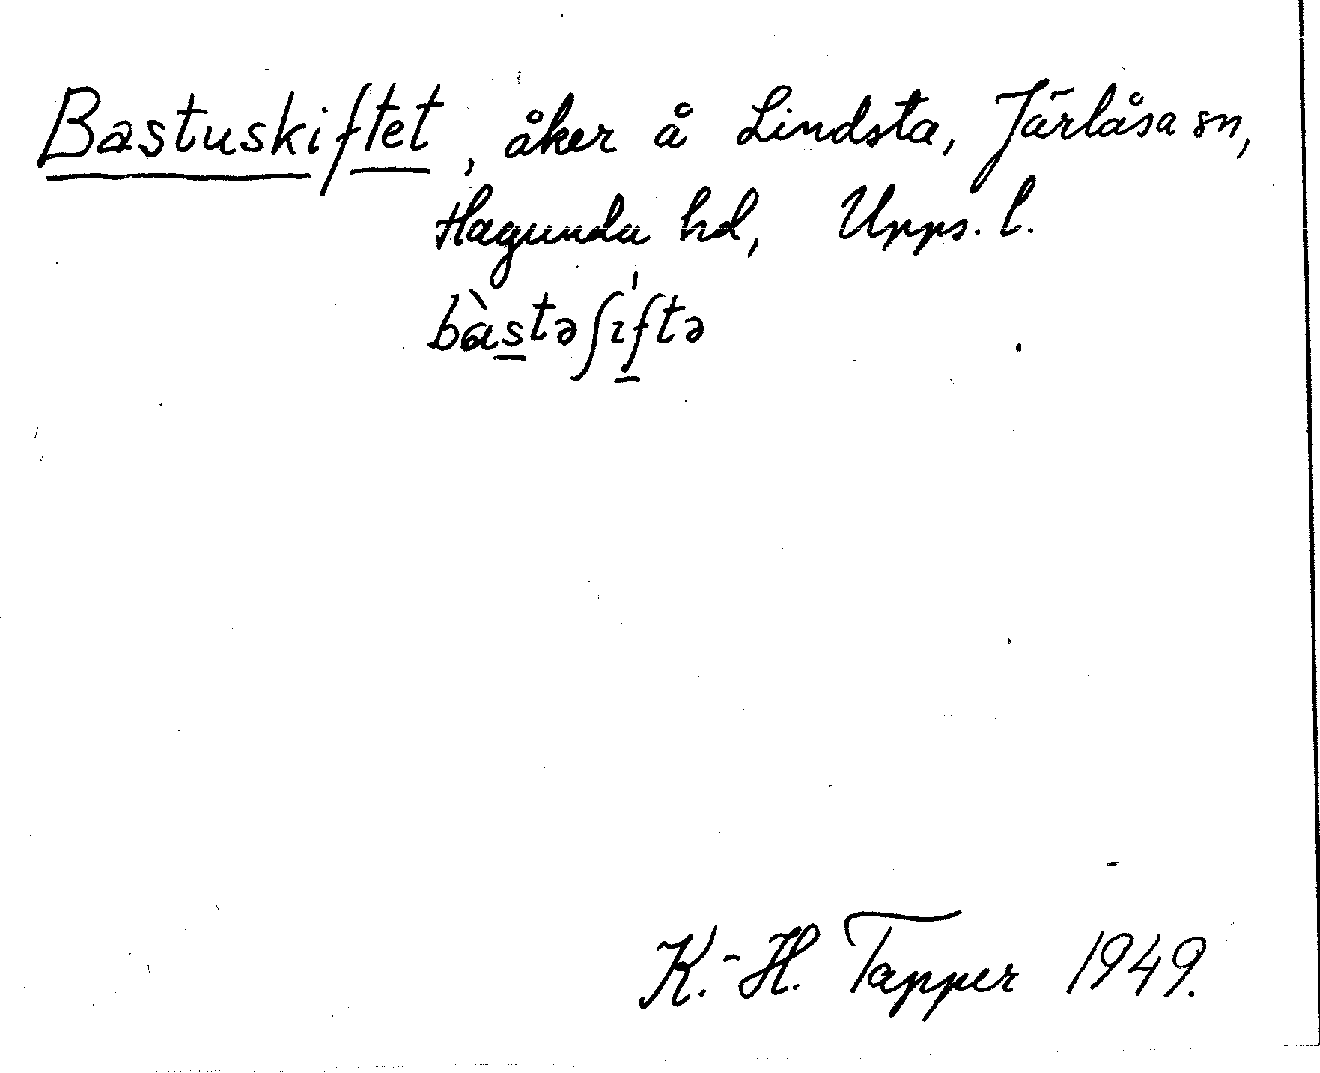 Bastuskiftet, åker å Lindsta, Järlåsa sn,
Hagunda hd, Upps. l.
bàs̲təʃıf̲tə
K.-H. Tapper 1949.